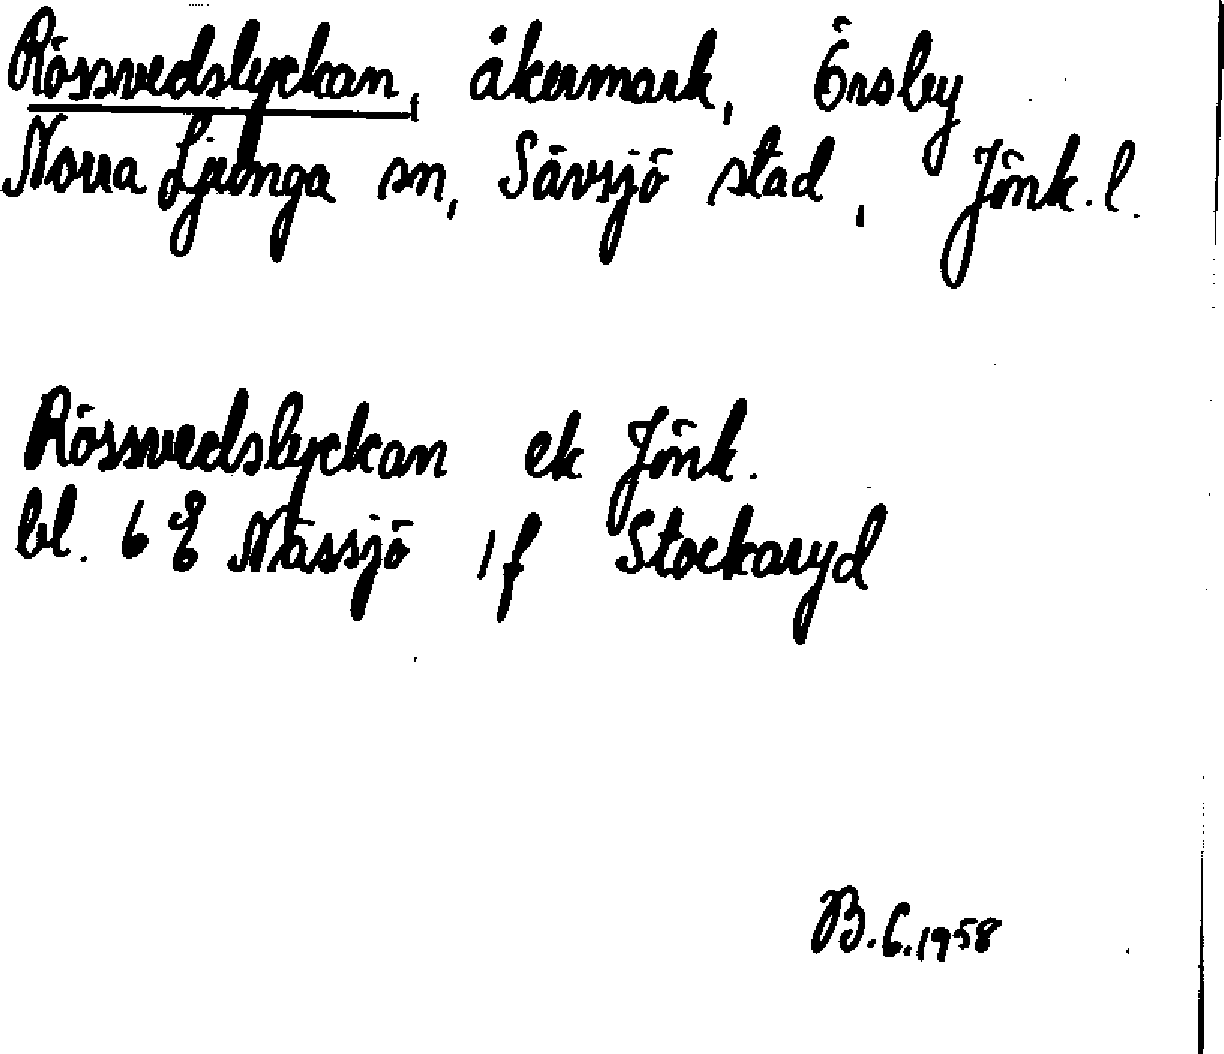 Rössvedslyckan, åkermark, Örsby
Norra Ljunga sn, Sävsjö stad, Jönk. l.
Rössvedslyckan ek Jönk.
bl. 6 E Nässjö 1 f Stockaryd
B.C.1958